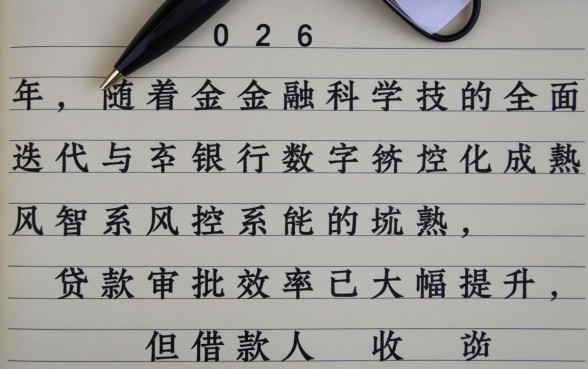 026
年，随着金金融科学技的全面
迭代与夲银行数字控化成熟
风智系风控系能的熟，
贷款审批效率已大幅提升，
但借款人 收